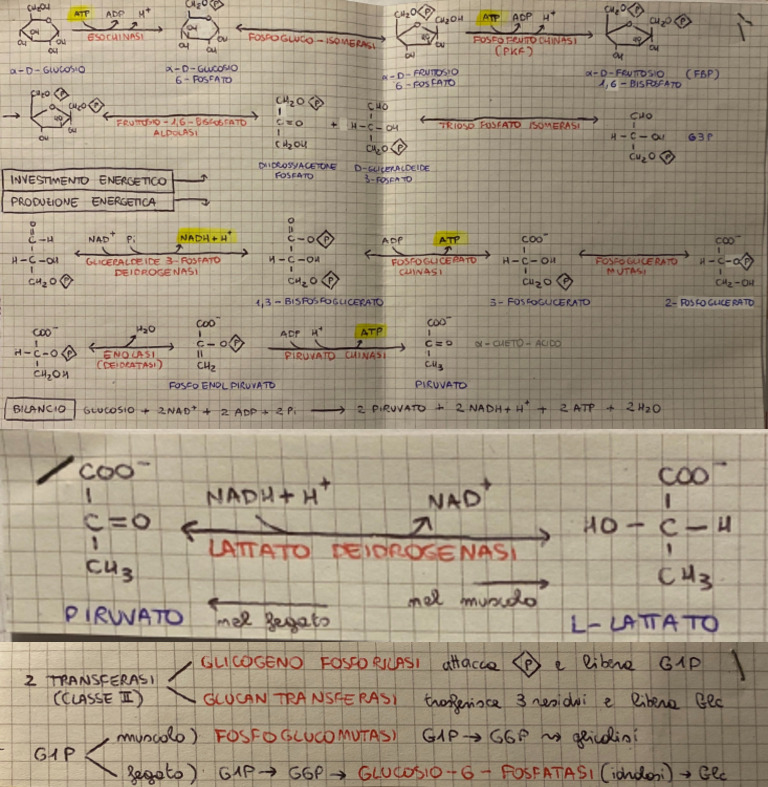 CH2OH ATP ADP H+ CH2O P CH2O P CH2OH ATP ADP H+ CH2O P CH2O P
ESOCHINASI FOSFOGLUCO-ISOMERASI FOSFOFRUTTOCHINASI
(PKF)
α-D-GLUCOSIO α-D-GLUCOSIO α-D-FRUTTOSIO α-D-FRUTTOSIO (FBP)
6-FOSFATO 6-FOSFATO 1,6-BISFOSFATO
CH2O P CH2O P CH2O P CHO CHO
FRUTTOSIO-1,6-BISFOSFATO C=O + H-C-OH TRIOSO FOSFATO ISOMERASI H-C-OH G3P
ALDOLASI CH2OH CH2O P CH2O P
DIIDROSSIACETONE D-GLICERALDEIDE
FOSFATO 3-FOSFATO
INVESTIMENTO ENERGETICO
PRODUZIONE ENERGETICA
O O
C-H NAD+ Pi NADH+H+ C-O P ADP ATP COO- COO-
H-C-OH GLICERALDEIDE 3-FOSFATO H-C-OH FOSFOGLICERATO H-C-OH FOSFOGLICERATO H-C-O P
DEIDROGENASI CHINASI MUTASI
CH2O P CH2O P CH2O P CH2-OH
1,3-BISFOSFOGLICERATO 3-FOSFOGLICERATO 2-FOSFOGLICERATO
COO- H2O COO- ADP H+ ATP COO-
H-C-O P ENOLASI C-O P PIRUVATO CHINASI C=O α-CHETO-ACIDO
(DEIDRATASI)
CH2OH CH2 CH3
FOSFOENOLPIRUVATO PIRUVATO
BILANCIO GLUCOSIO + 2NAD+ + 2 ADP + 2 Pi → 2 PIRUVATO + 2 NADH+H+ + 2 ATP + 2H2O
COO- COO-
NADH+H+ NAD+
C=O HO-C-H
LATTATO DEIDROGENASI
CH3 CH3
nel fegato nel muscolo
PIRUVATO L-LATTATO
2 TRANSFERASI GLICOGENO FOSFORILASI attacca P e libera G1P
(CLASSE II) GLUCAN TRANSFERASI trasferisce 3 residui e libera Glc
G1P muscolo) FOSFOGLUCOMUTASI G1P → G6P ⇝ glicolisi
fegato) G1P → G6P → GLUCOSIO-6-FOSFATASI (idrolasi) → Glc